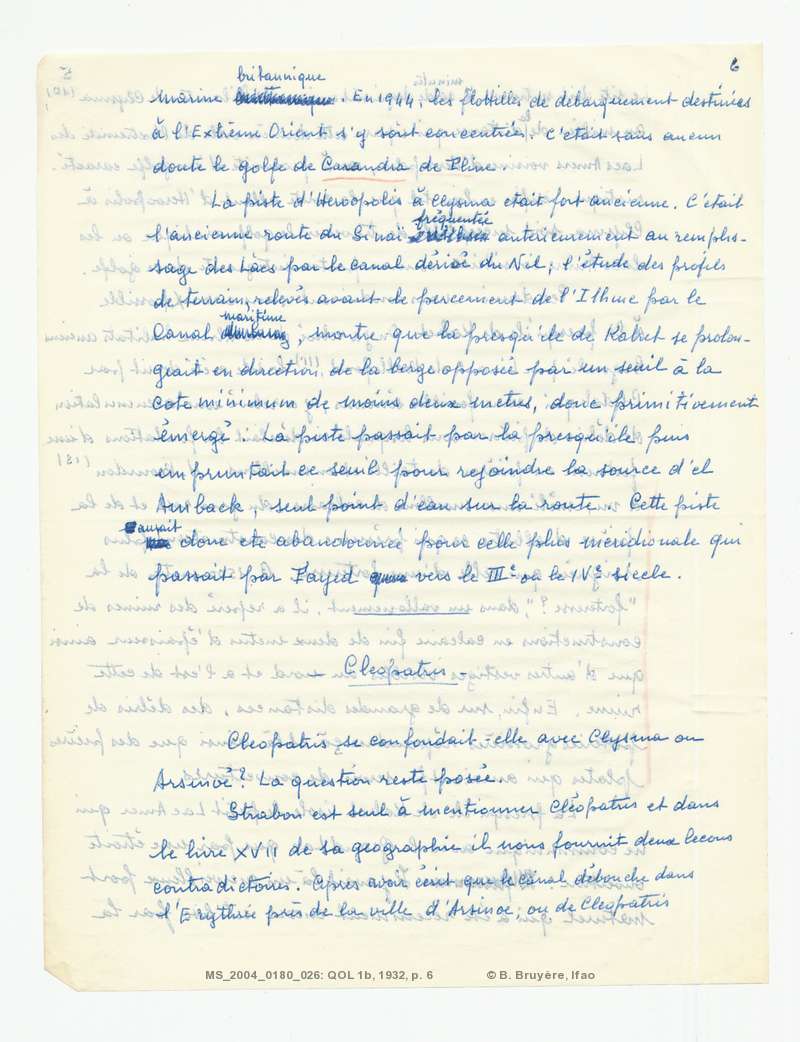 6
britannique
marine . En 1944, les flottilles de débarquement destinées
à l'Extrême Orient s'y sont concentrées. C'était sans aucun
doute le golfe de Carandra de Pline.
La piste d'Heroopolis à Clysma etait fort ancienne. C'était
fréquentée
l'ancienne route du Sinaï anterieurement au remplis-
sage des Lacs par le canal dérivé du Nil ; l'étude des profils
de terrain, relevés avant le percement de l'Isthme par le
maritime
Canal , montre que la presqu'ile de Kabret se prolon-
geait en direction de la berge opposée par un seuil à la
cote minimum de moins deux metres, donc primitivement
émergé. La piste passait par la presqu'ile puis
empruntait ce seuil pour rejoindre la source d'el
Amback, seul point d'eau sur la route. Cette piste
aurait
donc ete abandonnée pour celle plus méridionale qui
passait par Fayed vers le IIIe ou le IVe siècle.
- Cleopatris -
Cleopatris se confondait-elle avec Clysma ou
Arsinoé? La question reste posée.
Strabon est seul à mentionner Cléopatris et dans
le livre XVII de sa geographie il nous fournit deux lecons
contradictoires. Apres avoir écrit que le canal débouche dans
l'Erythrée près de la ville d'Arsinoe, ou de Cleopatris
MS_2004_0180_026: QOL 1b, 1932, p. 6 © B. Bruyère, Ifao